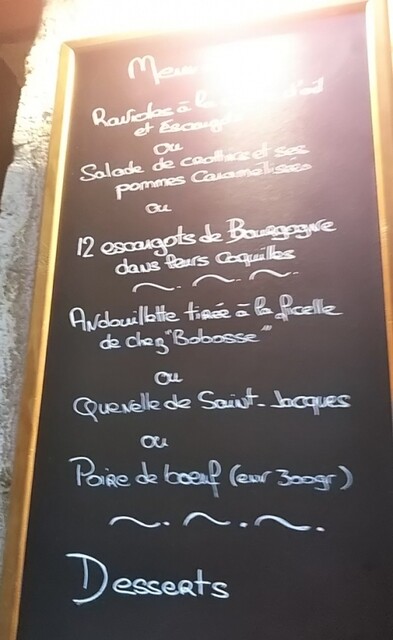 Menu
Ravioles à la
et Escargots
ou
Salade de crottins et ses
pommes caramélisées
ou
12 escargots de Bourgogne
dans leurs coquilles
Andouillette tirée à la ficelle
de chez "Bobosse"
ou
Quenelle de Saint-Jacques
ou
Poire de boeuf (eur 300gr)
Desserts